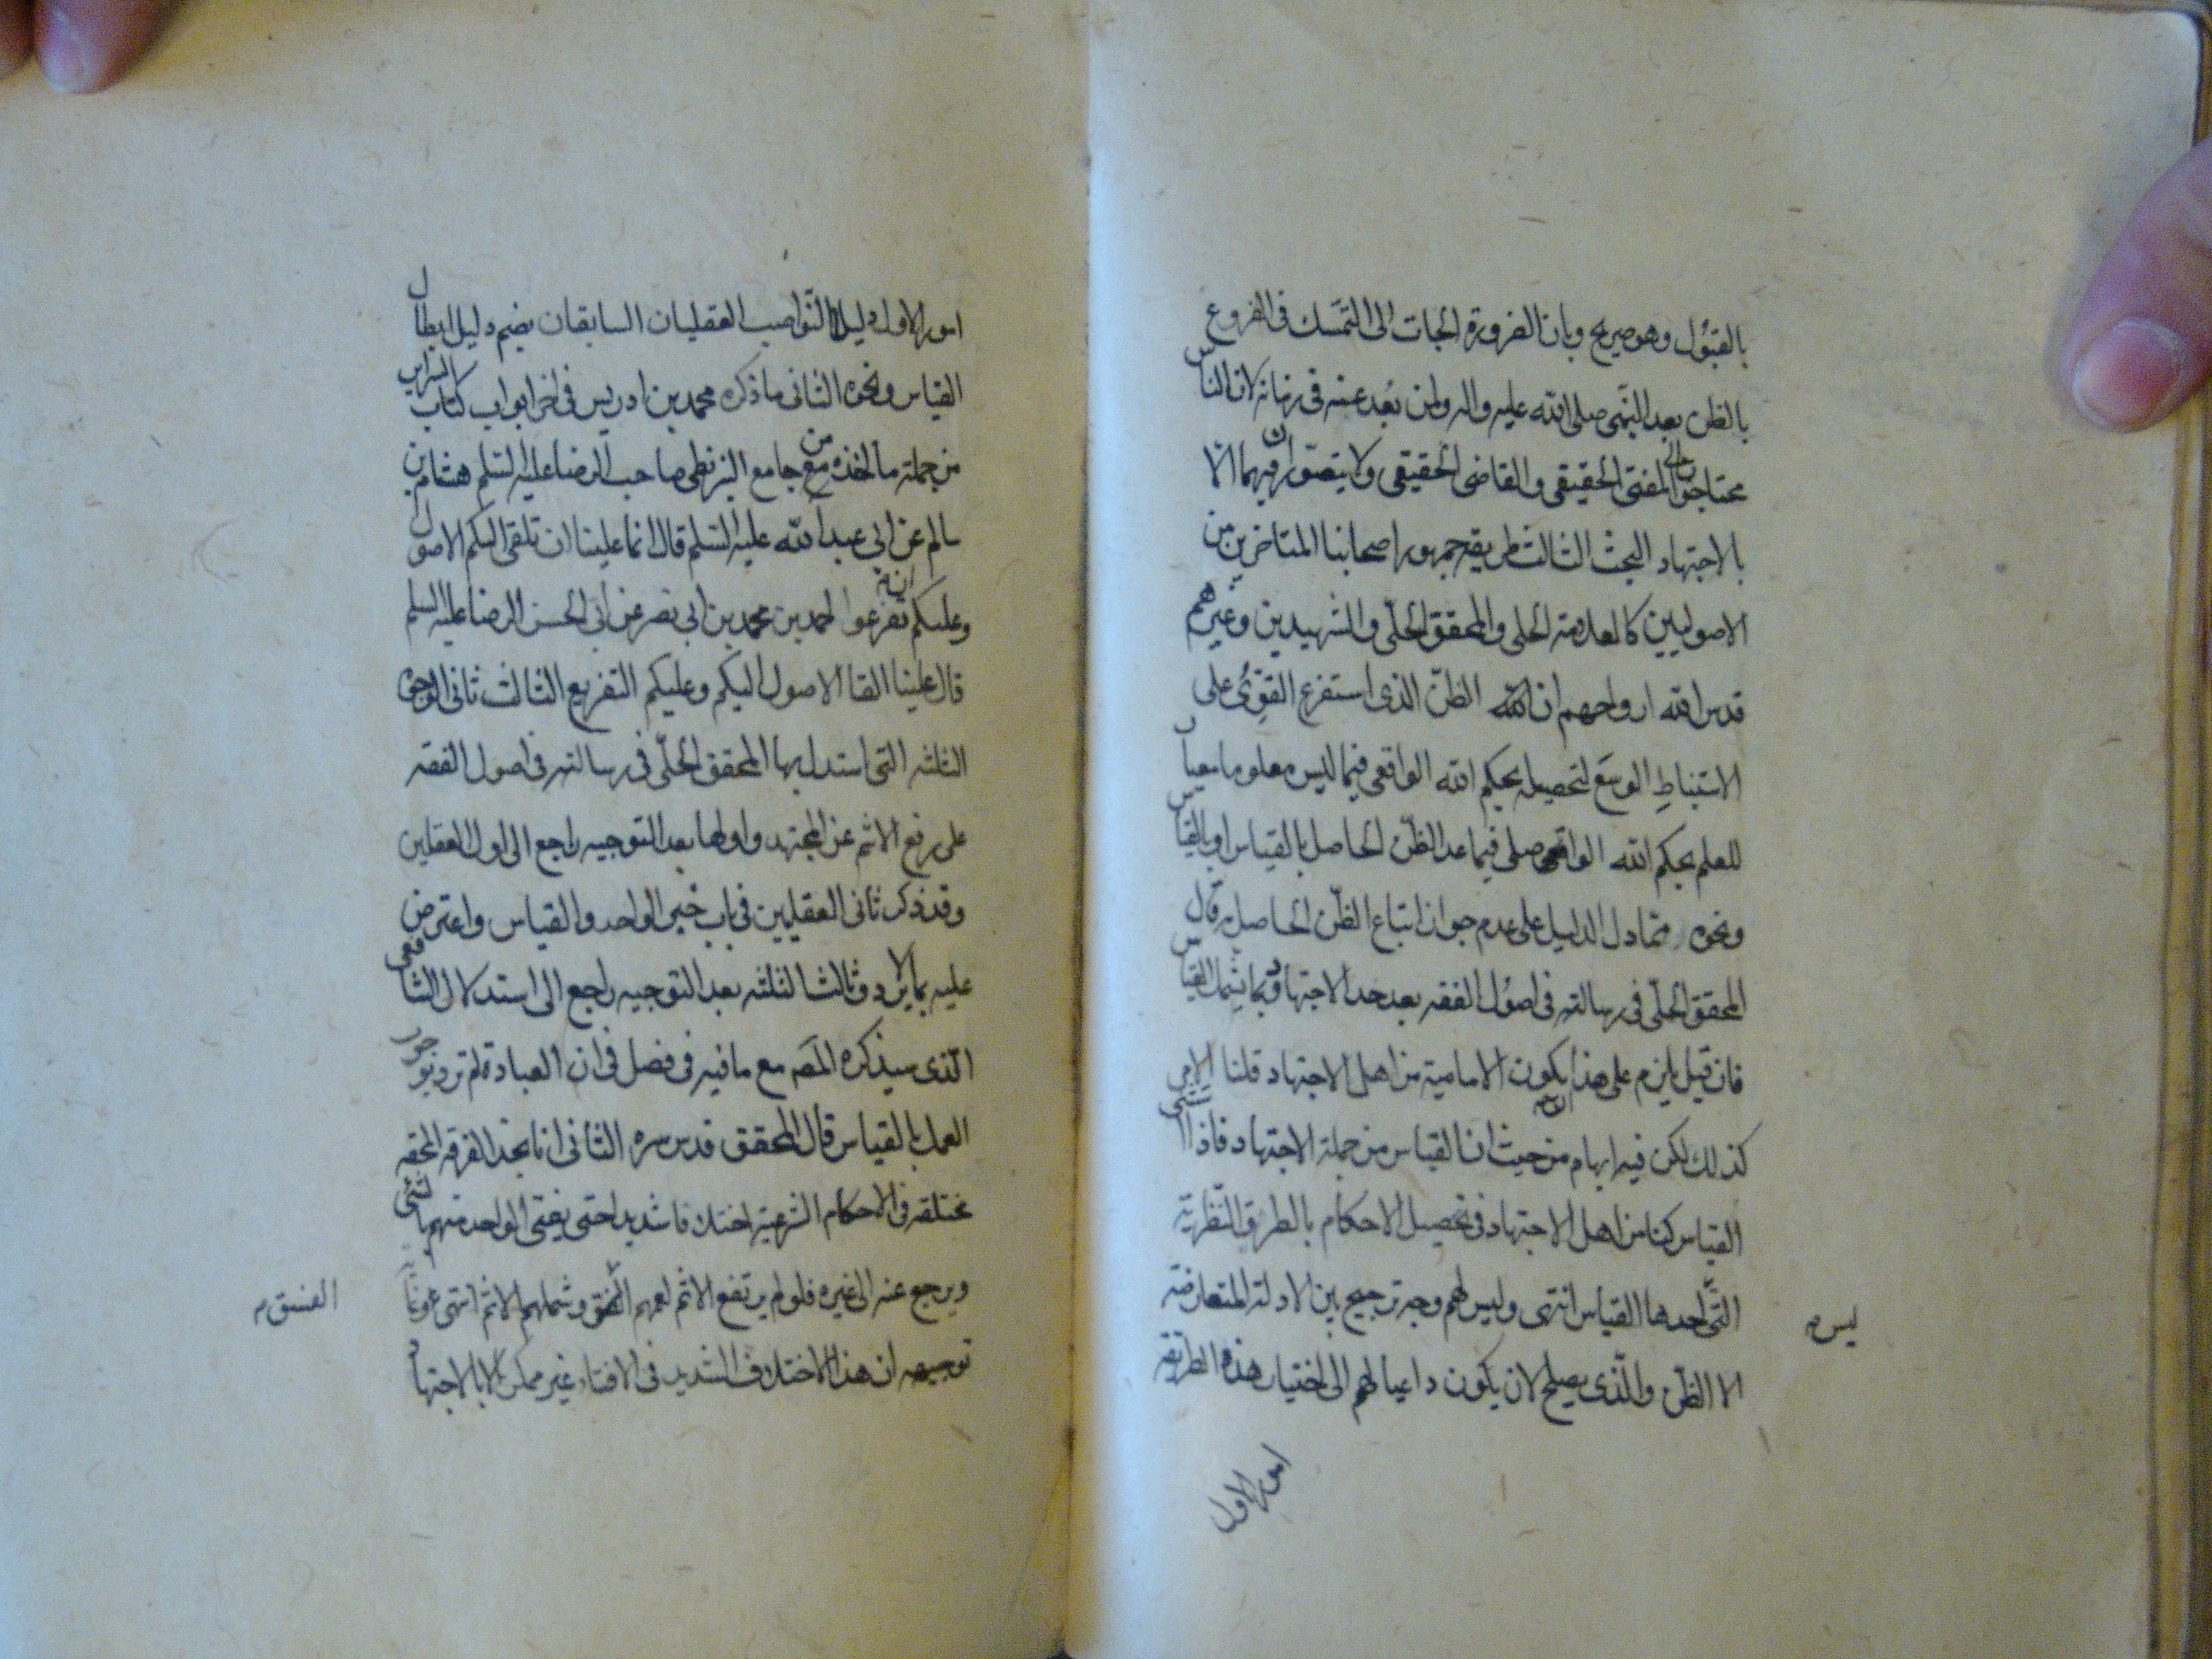 بالقبول وهو صريح وبان الضرورة الجات الى التمسك فى الفروع
بالظن بعد النبى صلى الله عليه واله ولمن بعد عنه فى زمانه لان الناس
محتاجون الى المفتى الحقيقى والقاضى الحقيقى ولا يتصوران فيهما الا
بالاجتهاد البحث الثالث طريقة جمهور اصحابنا المتاخرين من
الاصوليين كالعلامة الحلى والمحقق الحلى والشهيدين وغيرهم
قدس الله ارواحهم ان الظن الذى استفرغ القوى على
الاستنباط الوسع لتحصيله بحكم الله الواقعى فيما ليس معلوما معيار
للعلم بحكم الله الواصلى فيما عدا الظن الحاصل بالقياس
ونحوه مما دل الدليل على عدم جواز اتباع الظن الحاصل به قال
المحقق الحلى فى رسالته فى اصول الفقه بعد حد الاجتهاد بما يشمل القياس
فان قيل يلزم على هذا يكون الامامية من اهل الاجتهاد قلنا الامر
كذلك لكن فيه ايهام من حيث ان القياس من جملة الاجتهاد فاذا استثنى
القياس كنا من اهل الاجتهاد فى تحصيل الاحكام بالطرق النظرية
التى احدها القياس انتهى وليس لهم وجه ترجيح بين الادلة المتعارضة
ليس م
الا الظن والذى يصلح لان يكون داعيا لهم الى اختيار هذه الطريقة
امور الاول
امور الاول دليلا النواصب العقليان السابقان بضم دليل ابطال
القياس ونحوه الثانى ما ذكره محمد بن ادريس فى اخر ابواب كتاب السرائر
من جملة ما اخذه من جامع البزنطى صاحب الرضا عليه السلم هشام بن
سالم عن ابى عبد الله عليه السلم قال انما علينا ان نلقى اليكم الاصول
وعليكم ان تفرعوا احمد بن محمد بن ابى نصر عن ابى الحسن الرضا عليه السلم
قال علينا القا الاصول اليكم وعليكم التفريع الثالث ثانى الوجوه
الثلثة التى استدل بها المحقق الحلى فى رسالته فى اصول الفقه
على رفع الاثم عن المجتهد واولها بعد التوجيه راجع الى اول العقليين
وقد ذكر ثانى العقليين فى باب خبر الواحد والقياس واعترض
عليه بما لا يرد وثالث الثلثة بعد التوجيه راجع الى استدلال الشافعى
الذى سيذكره المصـ مع ما فيه فى فصل فى ان العبادة لم ترد بوجوب
العمل بالقياس قال المحقق قدس سره الثانى انا نجد الفرقة المحقة
مختلفة فى الاحكام الشرعية اختلافا شديدا حتى يفتى الواحد منهم بالشئ
ويرجع عنه الى غيره فلو لم يرتفع الاثم لعمهم الفسق وشملهم الاثم انتهى
الفسق م
توجيهه ان هذا الاختلاف الشديد فى الافتاء غير ممكن الا بالاجتهاد